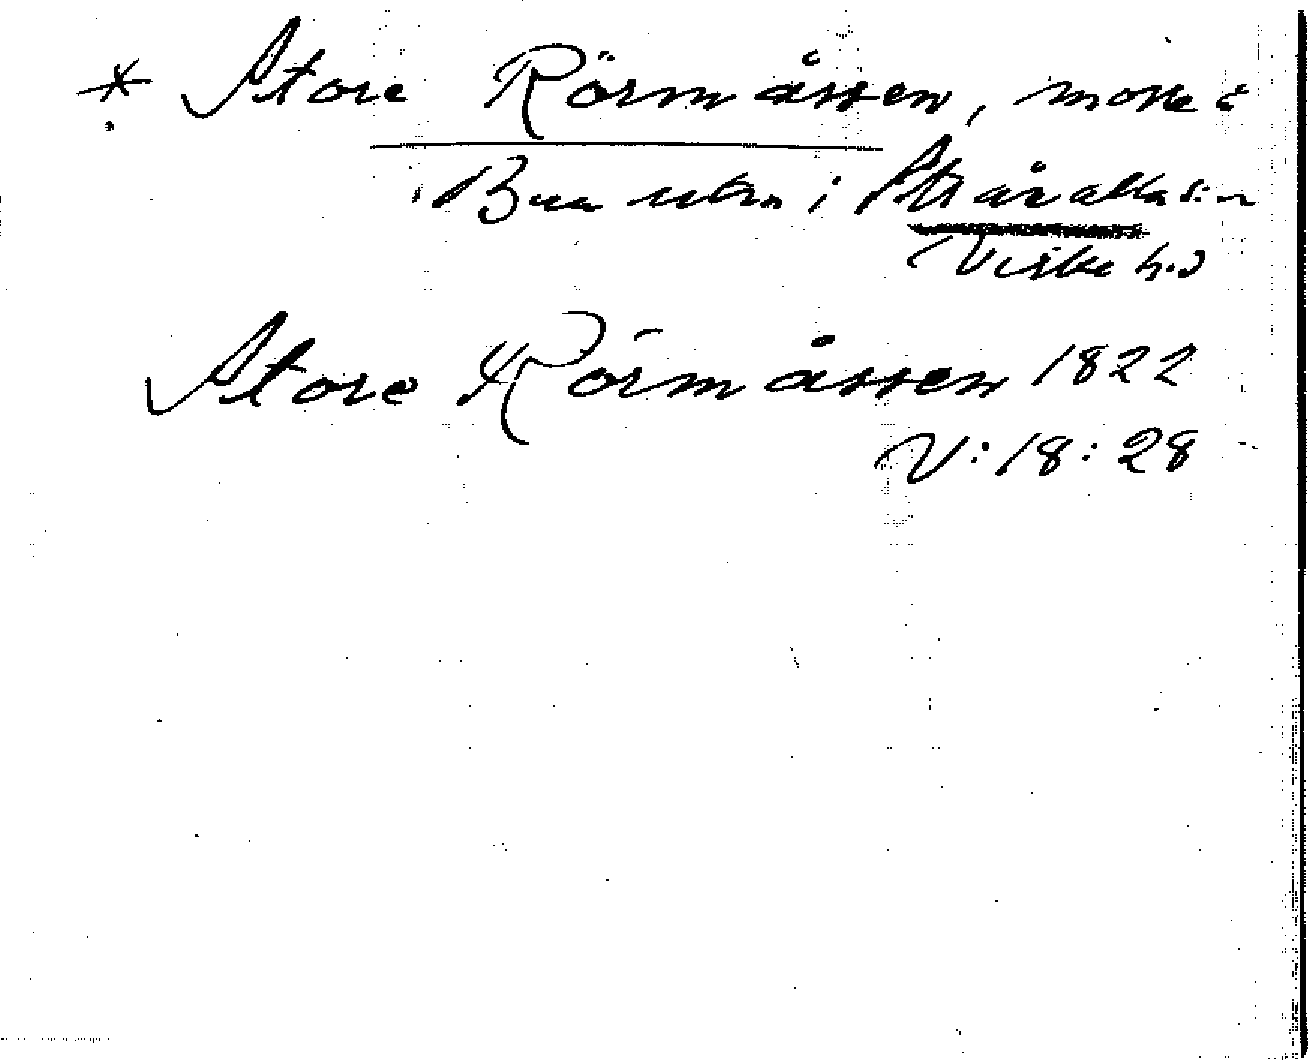 * Store Rörmåssen, mosse i
Bua utm. i Stråvalla s:n
Viske h:d
Store Rörmåssen 1822
V:18:28